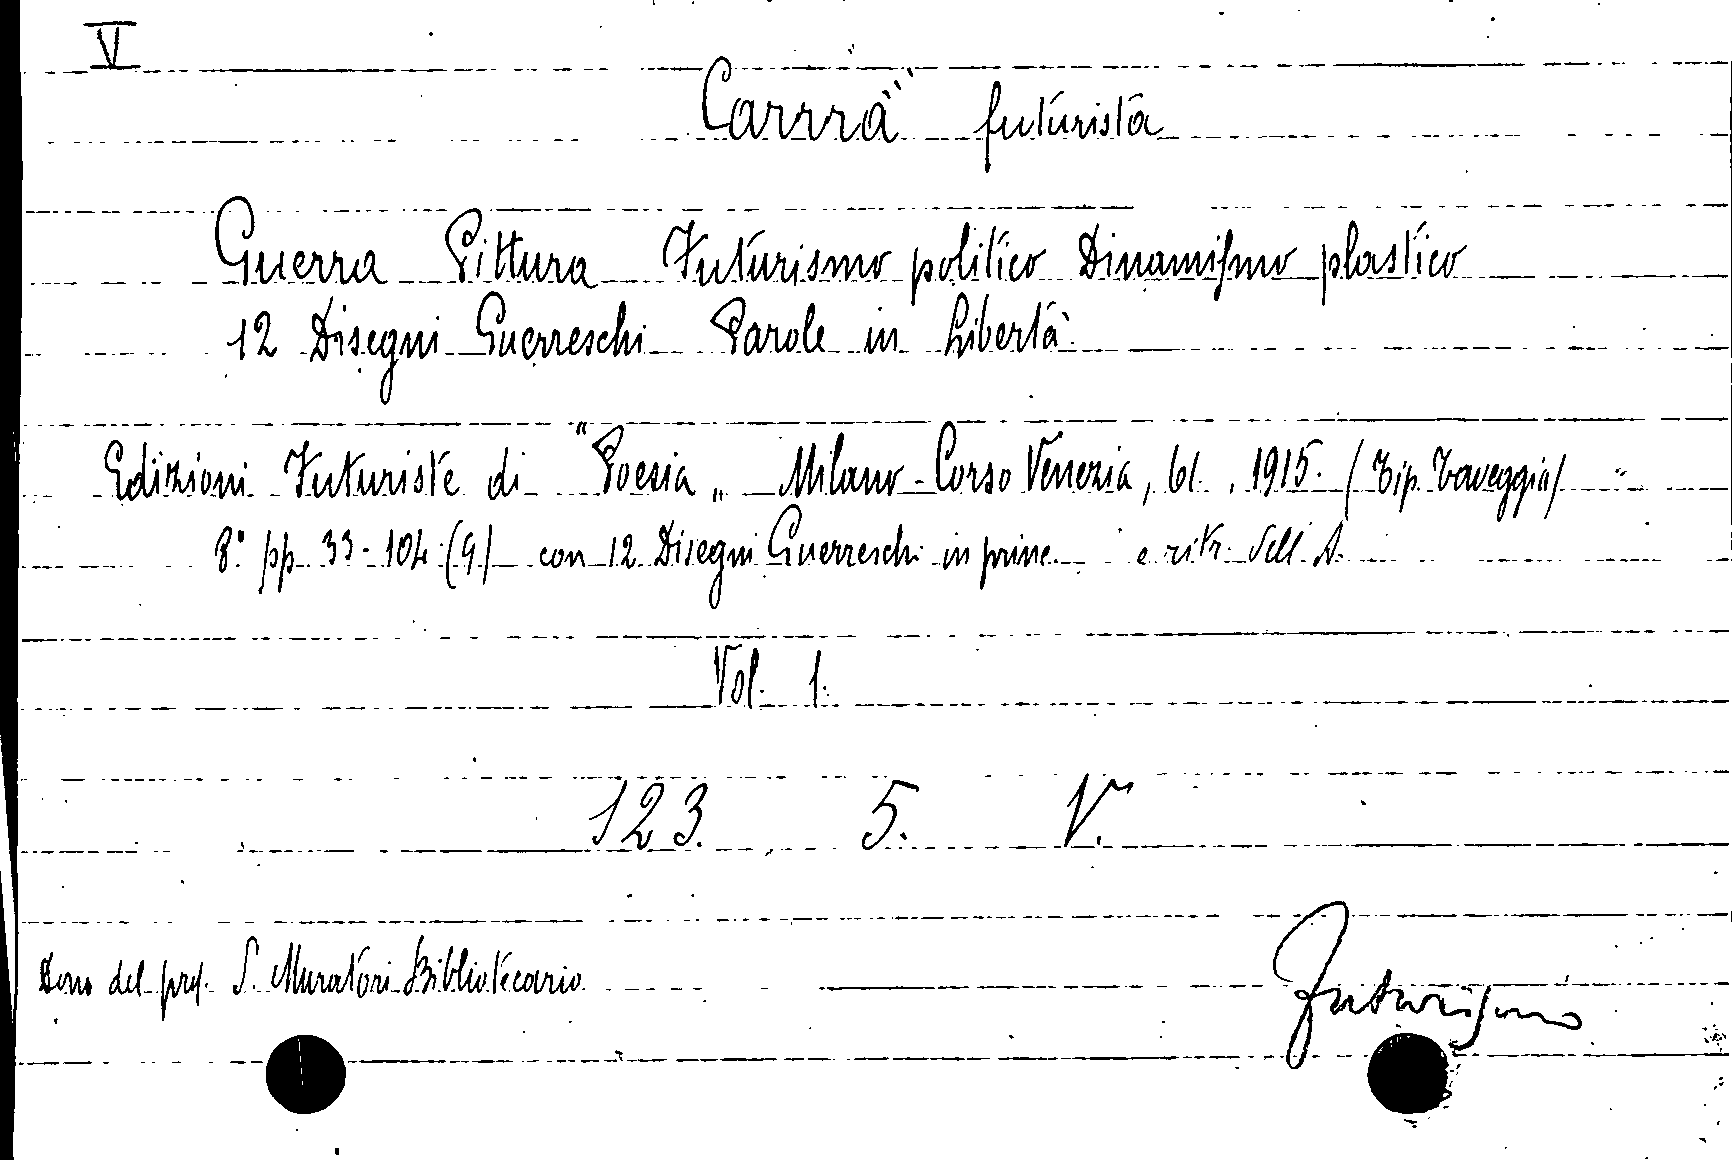 V
Carrrà futurista
Guerra Pittura Futurismo politico Dinamismo plastico
12 Disegni Guerreschi Parole in Libertà
Edizioni Futuriste di "Poesia„ Milano - Corso Venezia, 61. 1915. (Tip. Taveggia)
8° pp. 33-104 (9) con 12 Disegni Guerreschi in princ. e ritr. dell'A.
Vol. 1.
123. 5. V.
Dono del prof. S. Muratori Bibliotecario
Futurismo